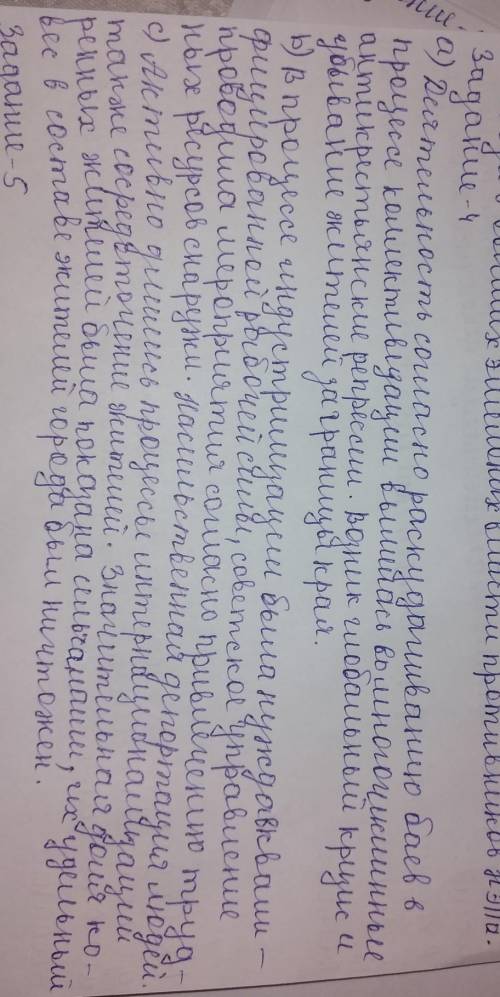 больших эшелонах власти противников
Задание-4
а) Деятельность согласно раскулачиванию баев в
процессе коллективизации вылилась во многотысячные
антикрестьянские репрессии. Возник глобальный кризис и
убывание жителей за границы края.
b) В процессе индустриализации была нужда в квали-
фицированной рабочей силы, советское управление
проводила мероприятия согласно привлечению труд-
ных ресурсов снаружи. Насильственная депортация людей.
с) Активно длились процессы интернационализации
также сосредоточение жителей. Значительная доля ко-
ренных жителей была показана сельчанами, их удельный
вес в составе жителей города был ничтожен.
Задание-5